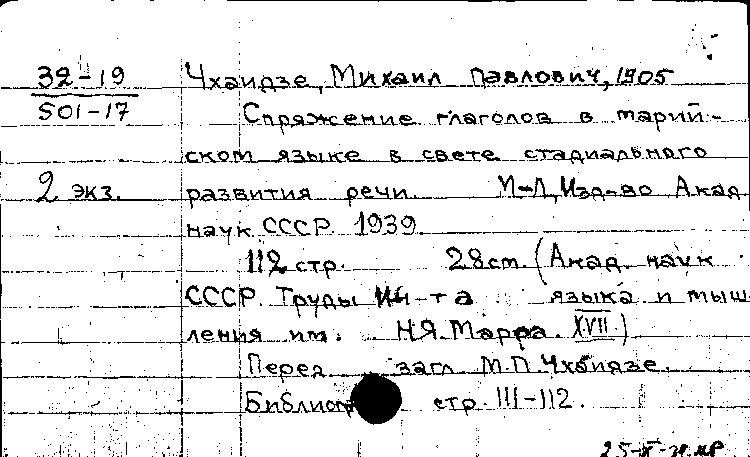 32-19
501-17
2 экз.
Чхаидзе, Михаил Павлович, 1905
Спряжение глаголов в марий-
ском языке в свете стадиального
развития речи. М-Л, Изд-во Акад
наук СССР 1939.
112 стр. 28 см. (Акад. наук
СССР. Труды Ин-та языка и мыш
ления им. Н.Я. Марра. XVII)
Перед загл. М.П. Чхаидзе.
Библиогр стр. 111-112.